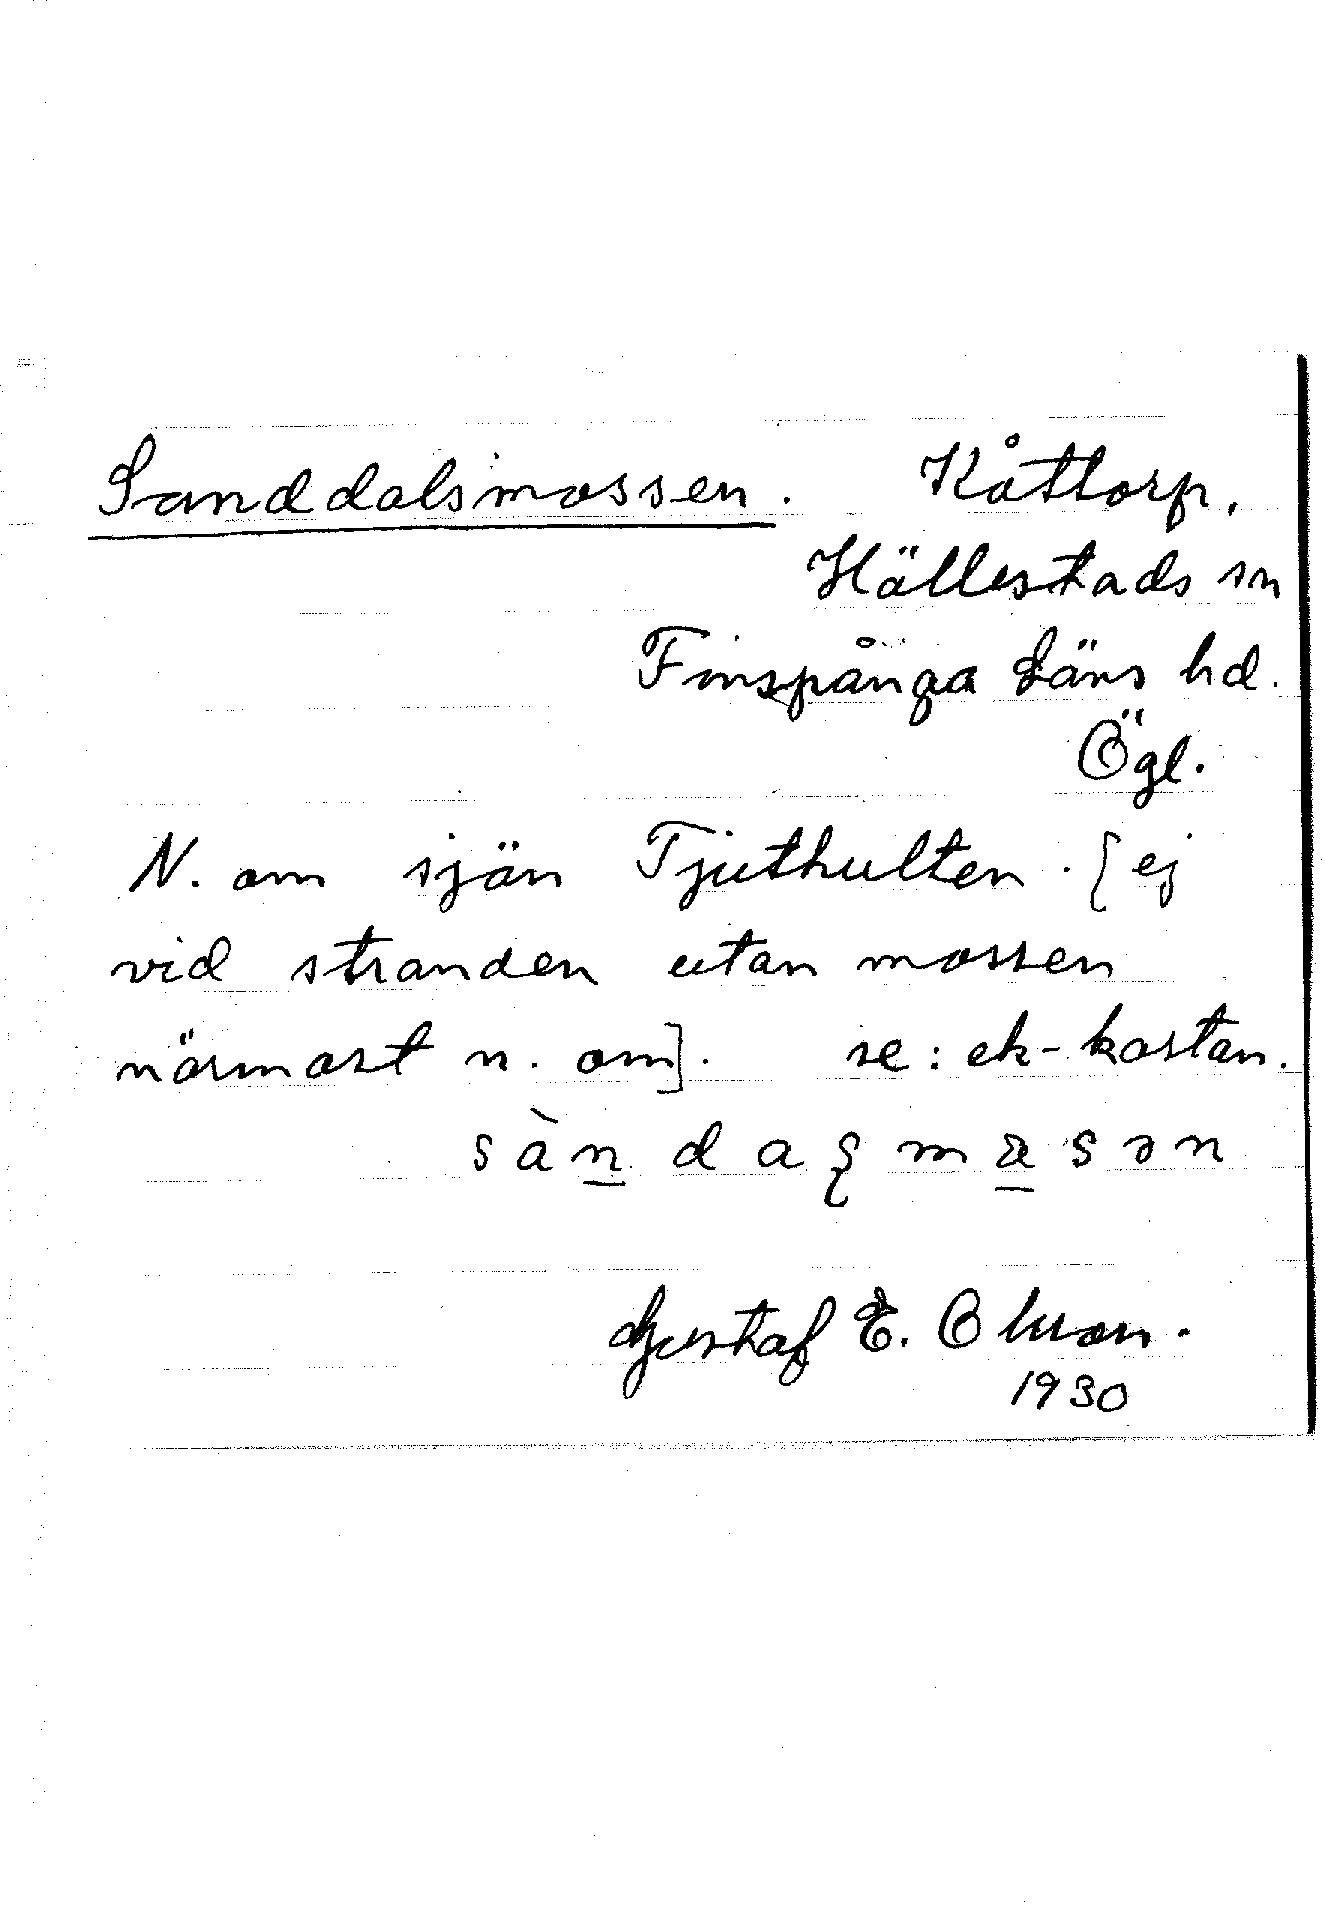 Sanddalsmossen. Kåttorp,
Hällestads sn
Finspånga läns hd.
Ögl.
N. om sjön Tjuthulten. [ej
vid stranden utan mossen
närmast n. om]. se: ek-kartan.
sàndaʂmasən
Gustaf E. Olsson.
1930